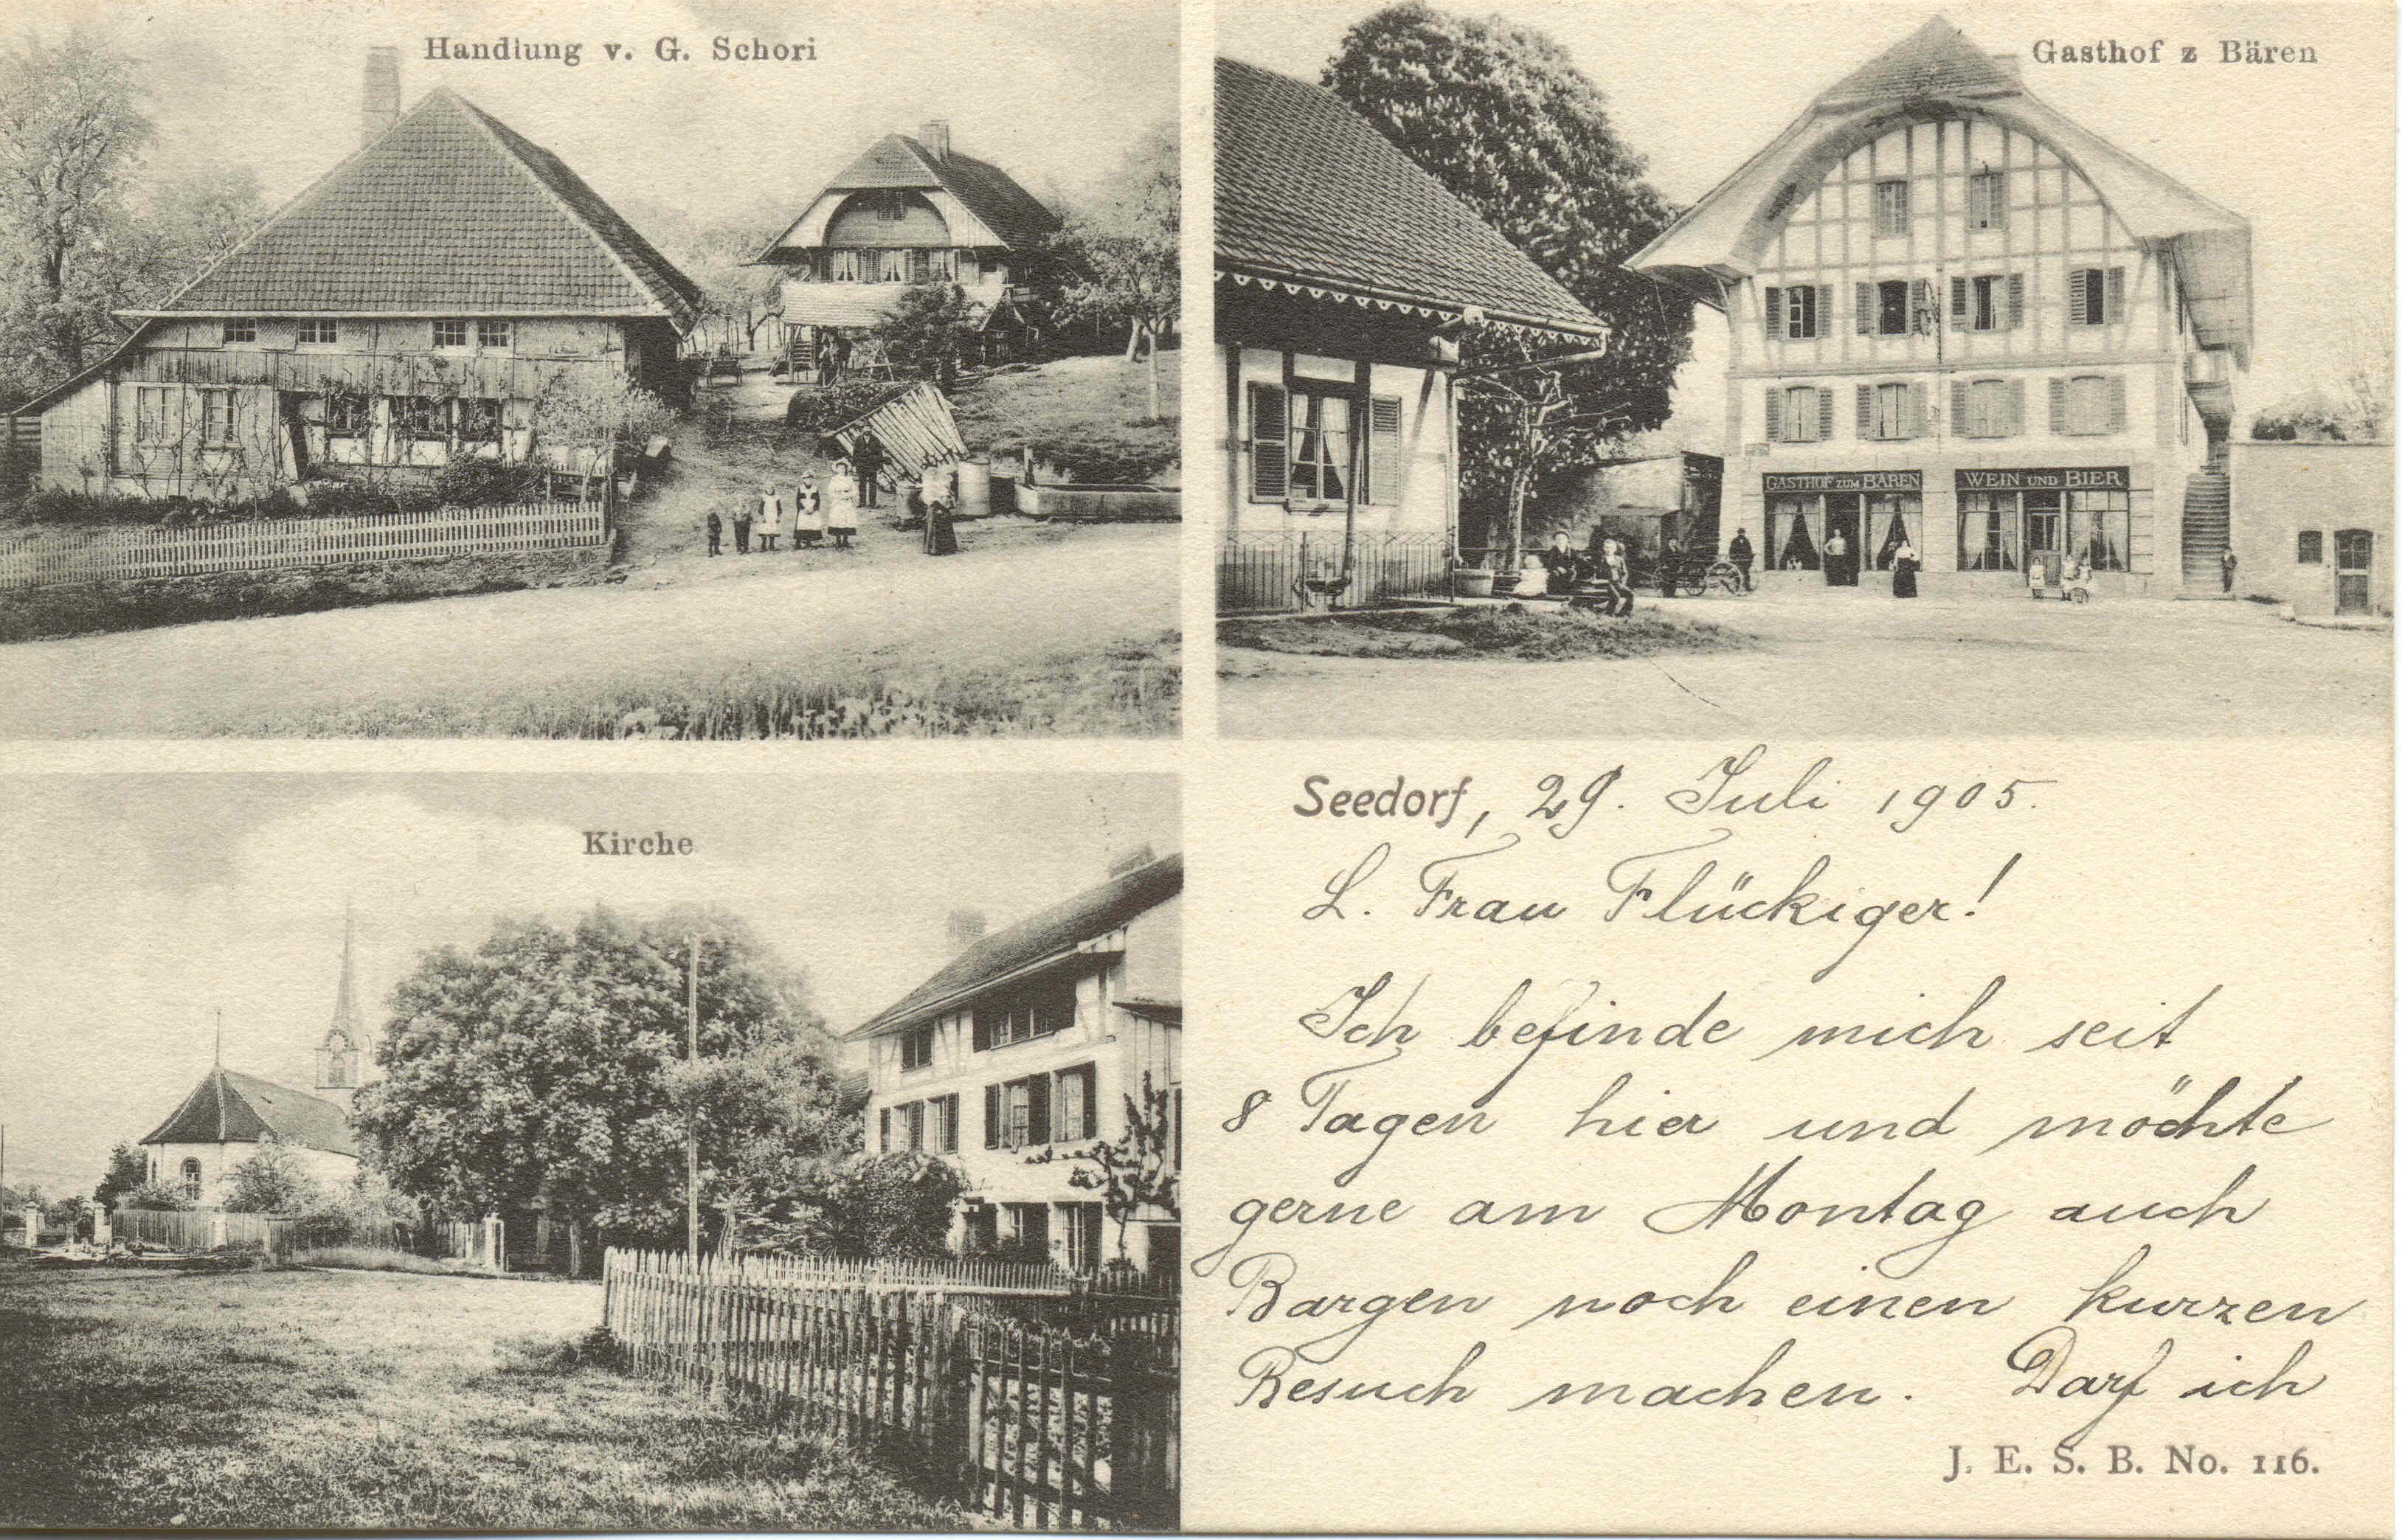 Handlung v. G. Schori
Gasthof z Bären
GASTHOF ZUM BÄREN
WEIN UND BIER
Kirche
Seedorf, 29. Juli 1905.
L. Frau Flückiger!
Ich befinde mich seit
8 Tagen hier und möchte
gerne am Montag auch
Bargen noch einen kurzen
Besuch machen. Darf ich
J. E. S. B. No. 116.